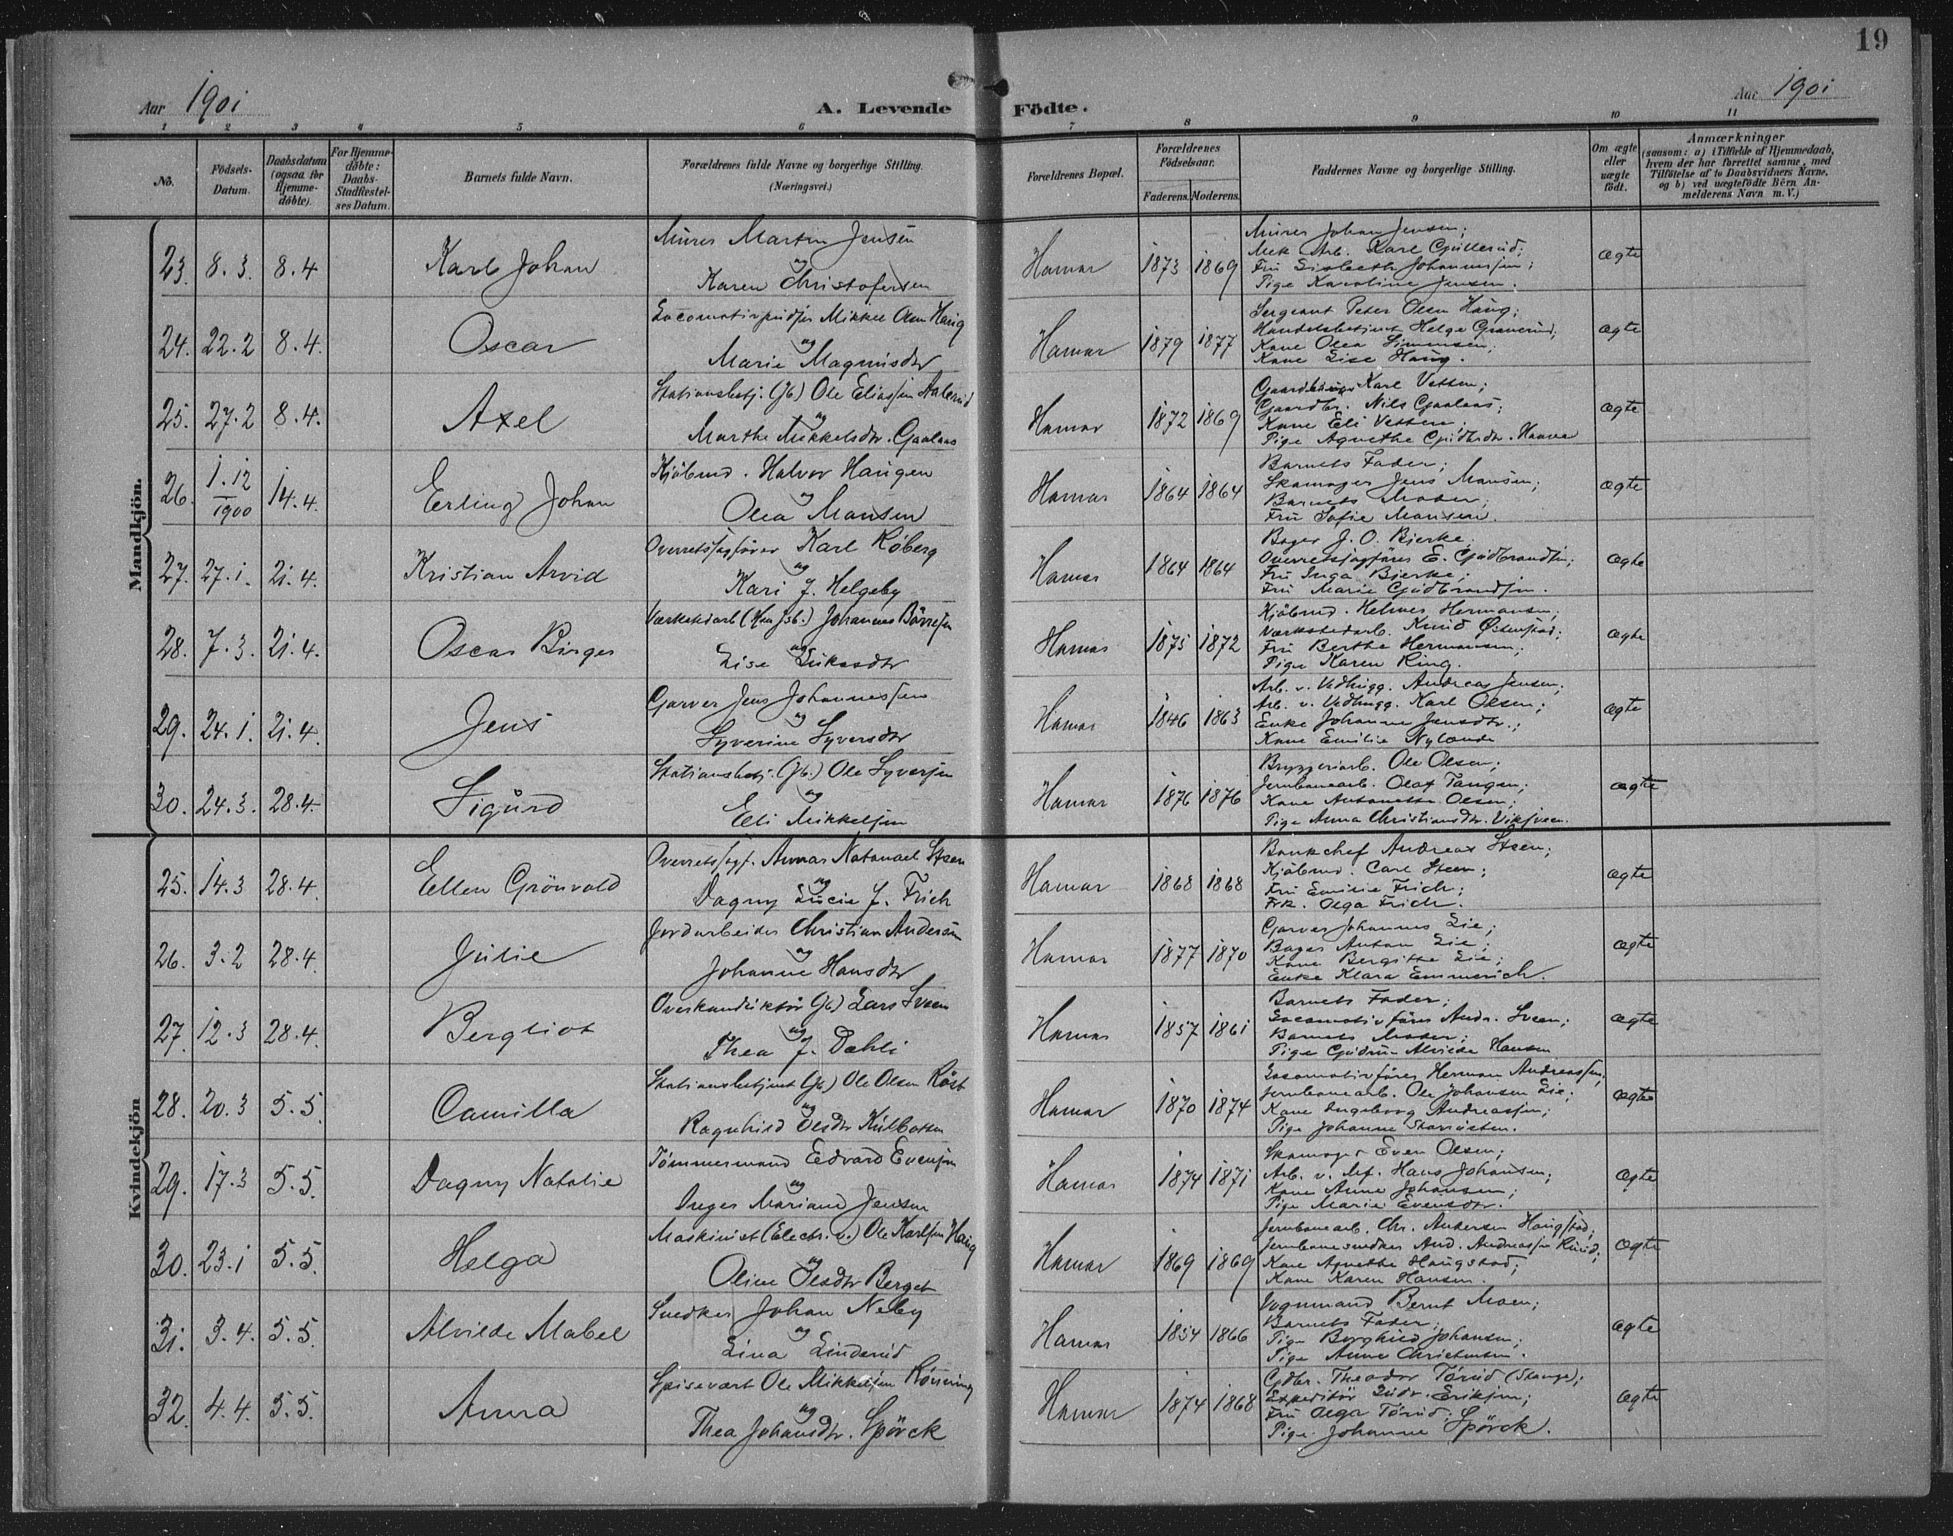 19
Aar 1901
A. Levende Födte.
Aar 1901
1 2 3 4 5 6 7 8 9 10 11
No.
Födsels-
Datum.
Daabsdatum
(ogsaa for
Hjemme-
döbte).
For Hjemme-
döbte:
Daabs-
Stadfæstel-
ses Datum.
Barnets fulde Navn.
Forældrenes fulde Navne og borgerlige Stilling.
(Næringsvei.)
Forældrenes Bopæl.
Forældrenes
Födselsaar.
Faderens. Moderens.
Faddernes Navne og borgerlige Stilling.
Om ægte
eller
uægte
födt.
Anmærkninger
(saasom: a) i Tilfælde af Hjemmedaab,
hvem der har forrettet samme, med
Tilföielse af to Daabsvidners Navne,
og b) ved uægtefödte Börn An-
melderens Navn m. V.)
Mandkjön.
23. 8.3. 8.4 Karl Johan
Murer Marten Jensen
og
Karen Christofersen
Hamar 1873 1869
Murer Johan Jensen;
Mek. Arb. Karl Gullerud;
Fru Lisbeth Johannesen;
Pige Karoline Jensen.
ægte
24. 22.2 8.4. Oscar
Locomotivpudser Mikkel Olsen Haug
og
Marie Magnusdtr
Hamar 1879 1877
Sergeant Peter Olsen Haug;
Handelsbetjent Helge Graverud;
Kone Olea Simensen;
Kone Lise Haug.
ægte
25. 27.2 8.4. Axel
Stationsbetj. (Jb.) Ole Eliassen
og
Marthe Mikkelsdtr. Gaalaas
Hamar 1872 1869
Gaardbruger Karl Vetten;
Gaardbr. Nils Gaalaas;
Kone Eli Vetten;
Pige Agnethe Gudbrdtr.
ægte
26. 1.12 1900 14.4. Erling Johan
Kjöbmd. Halvor Haugen
og
Olea Mausen
Hamar 1864 1864
Barnets Fader;
Skomager Jens Mausen;
Barnets Moder;
Fru Sofie Mausen.
ægte
27. 27.1. 21.4. Kristian Arvid
Overretssagförer Karl Roberg
og
Kari J. Helgeby
Hamar 1864 1864
Bager J. O. Bjerke;
Overretssagförer E. Gudbrandsen;
Fru Inga Bjerke;
Fru Marie Gudbrandsen.
ægte
28. 7.3. 21.4. Oscar Birger
Værkstedarb. Johannes Börresen
og
Lise Lukasdtr
Hamar 1875 1872
Kjöbmd. Helmer Hermansen;
Værkstedarb. Knud Østenstad;
Fru Berthe Hermansen;
Pige Karen Ring.
ægte
29. 24.1. 21.4. Jens
Garver Jens Johannessen
og
Syverine Syversdtr
Hamar 1846 1863
Arb. v. Vedhugg. Andreas Jensen;
Arb. v. Vedhugg. Karl Olsen;
Enke Johanne Jensdtr.;
Kone Emilie Nylende
ægte
30. 24.3. 28.4. Sigurd
Stationsbetj. (Jb.) Ole Syversen
og
Eli Mikkelsen
Hamar 1876 1876
Bryggeriarb. Ole Olsen;
Jernbanearb. Olaf Tangen;
Kone Antonette Olsen;
Pige Anna Christiansdtr. Viksveen.
ægte
Kvindekjön
25. 14.3 28.4. Ellen Grönvold
Overretssagf. Annar Natanael Steen
og
Dagny Lucie J. Frich
Hamar 1868 1868
Bankchef Andreas Steen;
Kjöbmd. Carl Steen;
Fru Emilie Frich;
Frk. Olga Frich.
ægte
26. 3.2 28.4. Julie
Jordarbeider Christian Andersen
og
Johanne Hansdtr
Hamar 1877 1870
Garver Johannes Lie;
Bager Anton Lie;
Kone Bergitte Lie;
Enke Klara Emmerich.
ægte
27. 12.3 28.4. Bergliot
Overkonduktör (Jb.) Lars Sveen
og
Thea J. Dæhli
Hamar 1857 1861
Barnets Fader;
Locomotivförer Andr. Sveen;
Barnets Moder;
Pige Gudrun Alvilde Hansen
ægte
28. 20.3 5.5. Camilla
Stationsbetjent (Jb) Ole Olsen Röst
og
Ragnhild Olsdtr Kulbotten
Hamar 1870 1874
Locomotivförer Herman Andreassen;
Jernbanearb. Ole Johansen Lie;
Kone Ingeborg Andreassen;
Pige Johanne
ægte
29. 17.3 5.5. Dagny Natalie
Tömmermand Edvard Evensen
og
Inger Mariane Jensen
Hamar 1874 1871
Skomager Even Olsen;
Arb. v. Hans Johansen;
Kone Anne Johansen;
Pige Marie Evensdtr.
ægte
30. 23.1 5.5. Helga
Maskinist (Electr. v.) Ole Karlsen Haug
og
Oline Olsdtr Berget
Hamar 1869 1869
Jernbanearb. Chr. Andersen Haugstad;
Jernbanesnedker And. Andreassen Ruud;
Kone Agnethe Haugstad;
Kone Karen Hansen.
ægte
31. 3.4. 5.5. Alvilde Mabel
Snedker Johan Neby
og
Lina Linderud
Hamar 1854 1866
Vognmand Bernt Moen;
Barnets Fader;
Pige Borghild Johansen;
Pige Anne Christensen.
ægte
32. 4.4. 5.5. Anna
Spisevært Ole Mikkelsen Rönning
og
Thea Johansdtr. Spörck
Hamar 1874 1868
Gdbr. Theodor Törud (Stange);
Expeditör Ludv. Eriksen;
Fru Olga Törud;
Pige Johanne Spörck.
ægte